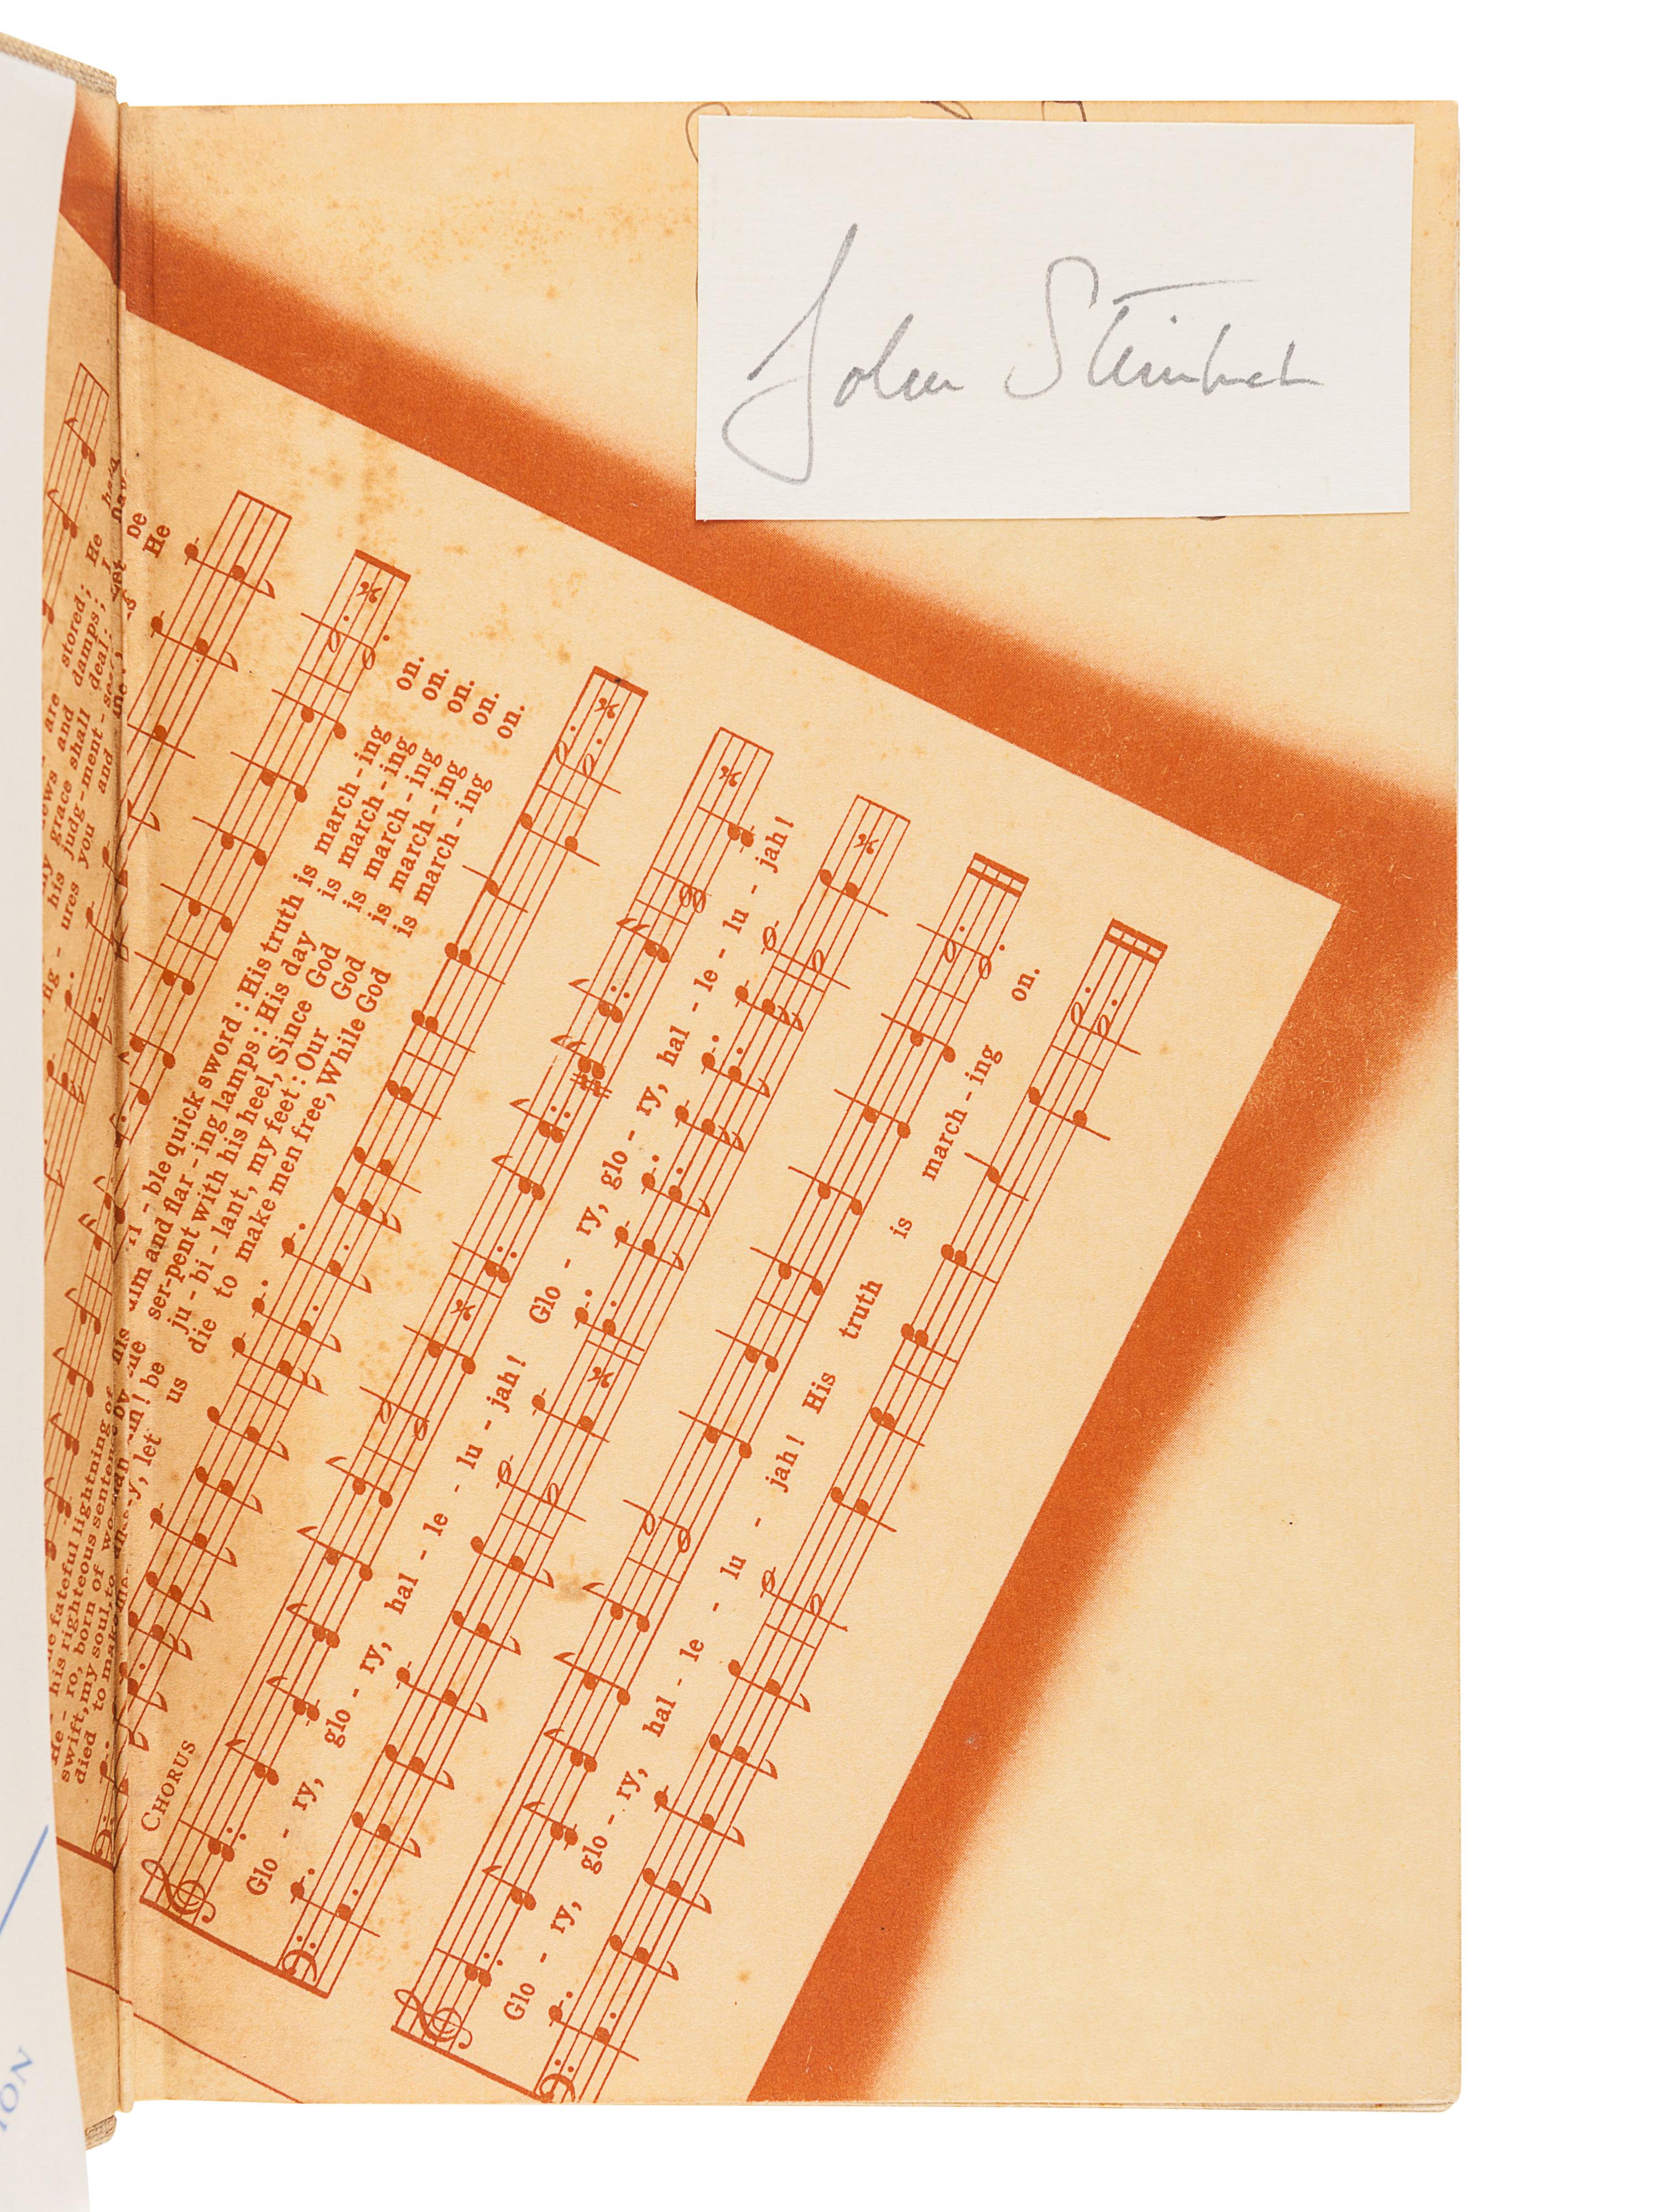 John Steinbeck
He
ble quick sword : His truth is march - ing on.
dim and flar - ing lamps : His day is march - ing on.
ser-pent with his heel, Since God is march - ing on.
be ju - bi - lant, my feet : Our God is march - ing on.
let us die to make men free, While God is march - ing on.
CHORUS
Glo - ry, glo - ry, hal - le - lu - jah! Glo - ry, glo - ry, hal - le - lu - jah!
Glo - ry, glo - ry, hal - le - lu - jah! His truth is march - ing on.
are stored; He
and damps; I
grace shall deal;
his judg - ment -
ures you and
fateful lightning of his
his righteous sentence by
He - ro, born of
swift, my soul, to
died to make
ION